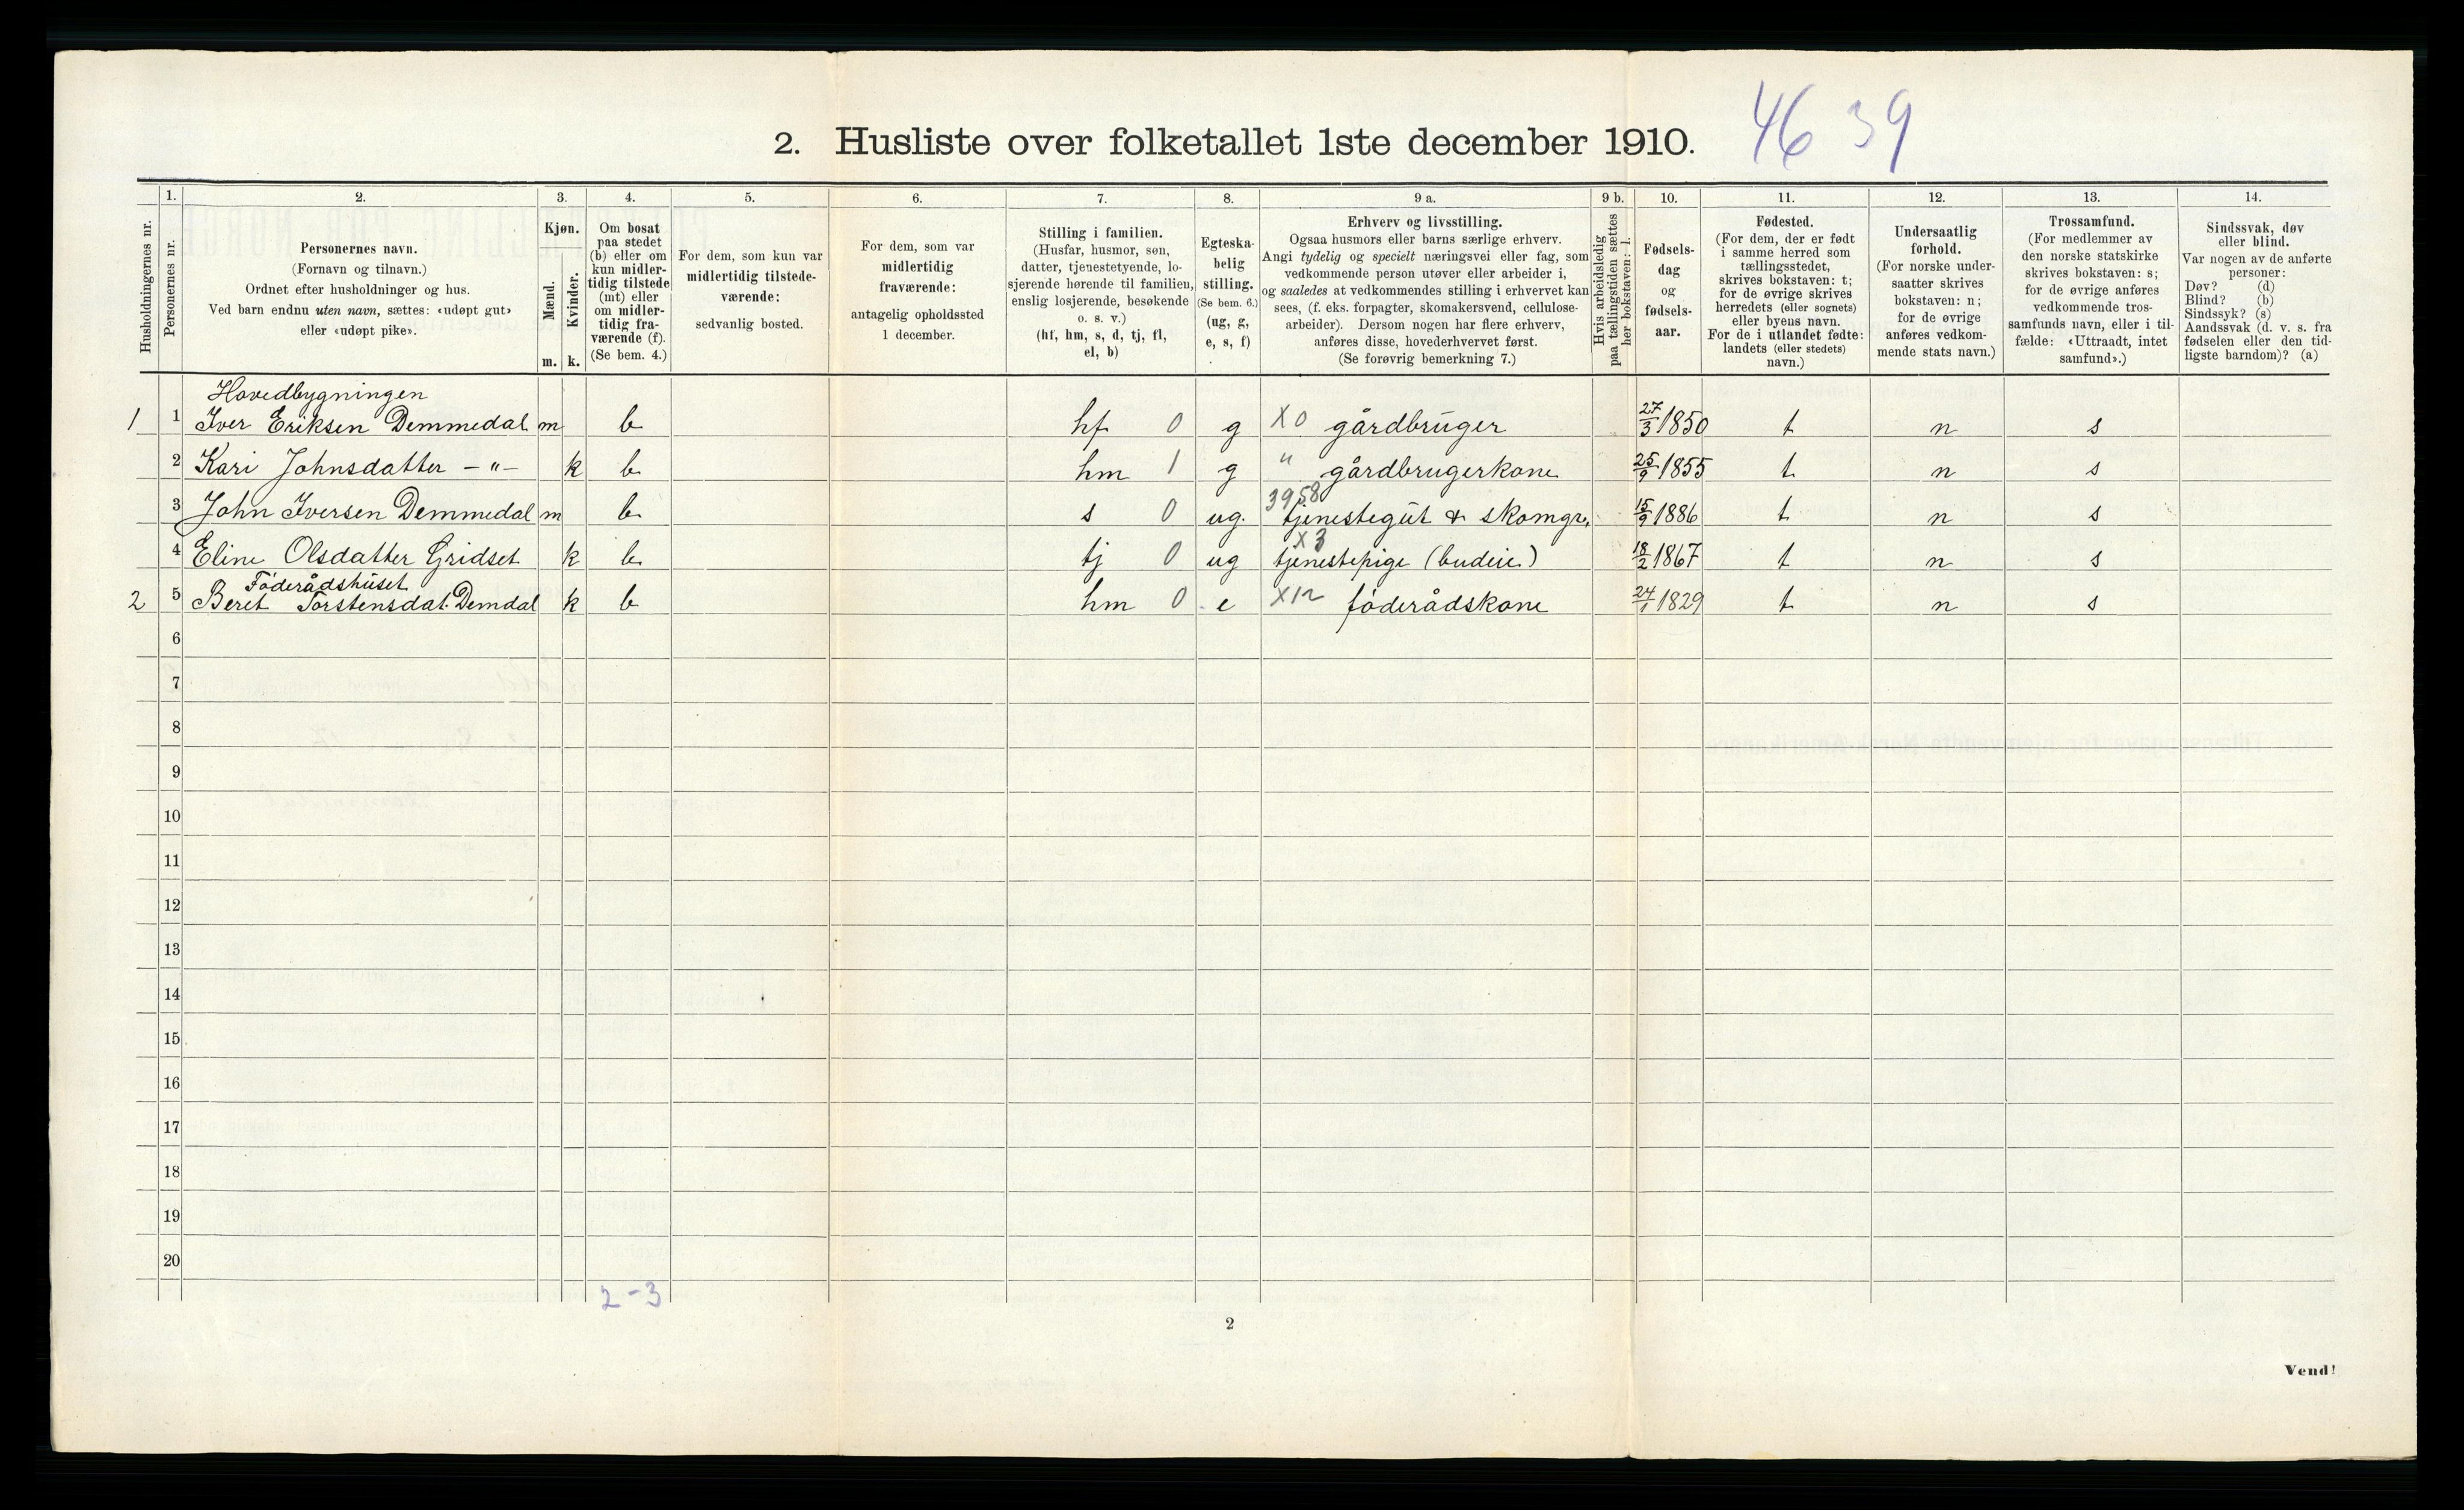 46 39
2. Husliste over folketallet 1ste december 1910.
Husholdningernes nr.
1.
Personernes nr.
2.
Personernes navn.
(Fornavn og tilnavn.)
Ordnet efter husholdninger og hus.
Ved barn endnu uten navn, sættes: «udøpt gut»
eller «udøpt pike».
3.
Kjøn.
Mænd.
m.
Kvinder.
k.
4.
Om bosat
paa stedet
(b) eller om
kun midler-
tidig tilstede
(mt) eller
om midler-
tidig fra-
værende (f).
(Se bem. 4.)
5.
For dem, som kun var
midlertidig tilstede-
værende:
sedvanlig bosted.
6.
For dem, som var
midlertidig
fraværende:
antagelig opholdssted
1 december.
7.
Stilling i familien.
(Husfar, husmor, søn,
datter, tjenestetyende, lo-
sjerende hørende til familien,
enslig losjerende, besøkende
o. s. v.)
(hf, hm, s, d, tj, fl,
el, b)
8.
Egteska-
belig
stilling.
(Se bem. 6.)
(ug, g,
e, s, f)
9 a.
Erhverv og livsstilling.
Ogsaa husmors eller barns særlige erhverv.
Angi tydelig og specielt næringsvei eller fag, som
vedkommende person utøver eller arbeider i,
og saaledes at vedkommendes stilling i erhvervet kan
sees, (f. eks. forpagter, skomakersvend, cellulose-
arbeider). Dersom nogen har flere erhverv,
anføres disse, hovederhvervet først.
(Se forøvrig bemerkning 7.)
9 b.
Hvis arbeidsledig
paa tællingstiden sættes
her bokstaven: l.
10.
Fødsels-
dag
og
fødsels-
aar.
11.
Fødested.
(For dem, der er født
i samme herred som
tællingsstedet,
skrives bokstaven: t;
for de øvrige skrives
herredets (eller sognets)
eller byens navn.
For de i utlandet fødte:
landets (eller stedets)
navn.)
12.
Undersaatlig
forhold.
(For norske under-
saatter skrives
bokstaven: n;
for de øvrige
anføres vedkom-
mende stats navn.)
13.
Trossamfund.
(For medlemmer av
den norske statskirke
skrives bokstaven: s;
for de øvrige anføres
vedkommende tros-
samfunds navn, eller i til-
fælde: «Uttraadt, intet
samfund».)
14.
Sindssvak, døv
eller blind.
Var nogen av de anførte
personer:
Døv? (d)
Blind? (b)
Sindssyk? (s)
Aandssvak (d. v. s. fra
fødselen eller den tid-
ligste barndom)? (a)
Hovedbygningen
1 1 Iver Eriksen Demmedal m b hf 0 g X0 gårdbruger 27/3 1850 t n s
2 Kari Johnsdatter -"- k b hm 1 g " gårdbrugerkone 25/9 1855 t n s
3958
3 John Iversen Demmedal m b s 0 ug. tjenestegut & skomgr. 15/9 1886 t n s
X3
4 Eline Olsdatter Gridset k b tj 0 ug tjenestepige (budeie) 18/2 1867 t n s
Føderådshuset
2 5 Beret Torstensdat. Demdal k b hm 0 e X12 føderådskone 24/1 1829 t n s
6
7
8
9
10
11
12
13
14
15
16
17
18
19
20
2-3
2
Vend!